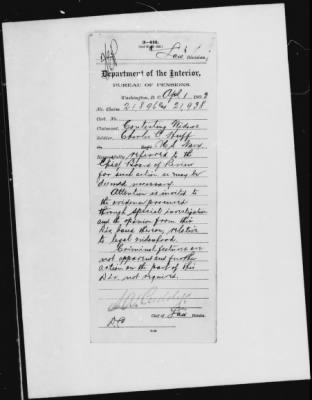 3-458.
Law Division,
Department of the Interior,
BUREAU OF PENSIONS.
Washington, D. C., Apl 1, 1902
No. Claims 21896 & 21938
Cert. No.
Claimant, Contesting Widows
Soldier, Charles C. Huff
U. S. Navy
Respectfully referred to the
Chief Board of Review
for such action as may be
deemed necessary.
Attention is invited to
the evidence procured
through special investigation
and the opinion from this
Div. based thereon, relative
to legal widowhood.
Criminal features are
not apparent and further
action on the part of this
Div. not required.
Chief of Law Division.